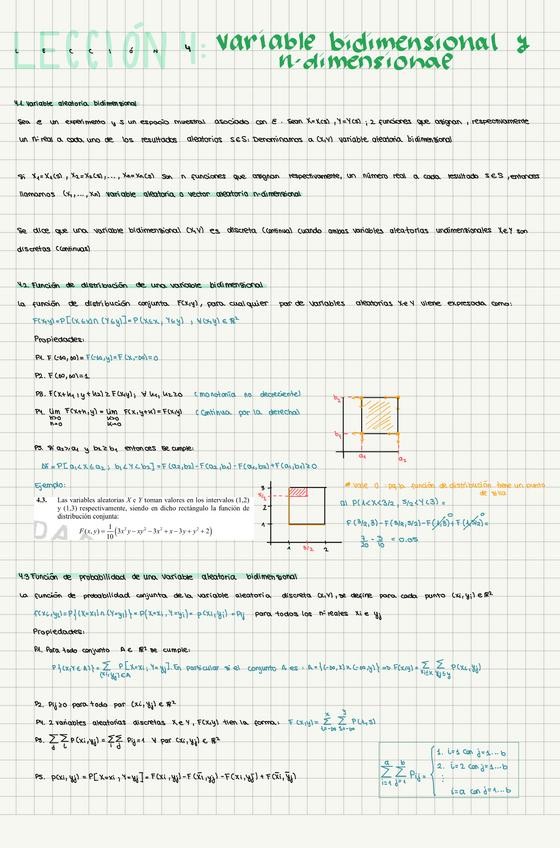 LECCIÓN 4: variable bidimensional y
n-dimensional
4.1. Variable aleatoria bidimensional
Sea E un experimento y S un espacio muestral asociado con E. Sean X=X(s), Y=Y(s); 2 funciones que asignan, respectivamente
un nº real a cada uno de los resultados aleatorios s∈S. Denominamos a (X,Y) variable aleatoria bidimensional
Si X₁=X₁(s), X₂=X₂(s),..., Xn=Xn(s) son n funciones que asignan respectivamente, un número real a cada resultado s∈S, entonces
llamamos (X₁,..., Xn) variable aleatoria o vector aleatorio n-dimensional
Se dice que una variable bidimensional (X,Y) es discreta (continua) cuando ambas variables aleatorias unidimensionales X e Y son
discretas (continuas)
4.2. Función de distribución de una variable bidimensional
La función de distribución conjunta F(x,y), para cualquier par de variables aleatorias X e Y viene expresada como:
F(x,y)=P[(X≤x)∩(Y≤y)]=P(X≤x, Y≤y) ; ∀(x,y)∈ℝ²
Propiedades:
P1. F(-∞,∞)=F(-∞,y)=F(x,-∞)=0
P2. F(∞,∞)=1
P3. F(x+h₁, y+h₂)≥F(x,y); ∀ h₁,h₂≥0 (monotonía no decreciente)
P4. lim h→0 F(x+h,y)= lim h→0 F(x,y+h)=F(x,y) (Continua por la derecha)
b₂
b₁
a₁ a₂
P5. Si a₂≥a₁ y b₂≥b₁ entonces se cumple:
ΔF=P[a₁<X≤a₂; b₁<Y≤b₂]=F(a₂,b₂)-F(a₂,b₁)-F(a₁,b₂)+F(a₁,b₁)≥0
Ejemplo:
4.3. Las variables aleatorias X e Y toman valores en los intervalos (1,2)
y (1,3) respectivamente, siendo en dicho rectángulo la función de
distribución conjunta:
F(x,y)=1/10(3x²y−xy²−3x²+x−3y+y²+2)
3
5/2
2
1
1 3/2 2
* vale 0 pq la función de distribución tiene un punto
a) P(1<X<3/2, 5/2<Y<3)=
F(3/2,3)-F(3/2,5/2)-F(1,3)+F(1,5/2)=
= 0.05
4.3 Función de probabilidad de una variable aleatoria bidimensional
La función de probabilidad conjunta de la variable aleatoria discreta (X,Y), se define para cada punto (xi,yj)∈ℝ²
P{(X=xi)∩(Y=yj)}=P[X=xi, Y=yj]=p(xi,yj)=Pij para todos los nº reales xi e yj
Propiedades:
P1. Para todo conjunto A∈ℝ² se cumple:
P{(X,Y∈A)}=∑(xi,yj)∈A P[X=xi, Y=yj]. En particular si el conjunto A es: A={(-∞,x)×(-∞,y)} ⇒ F(x,y)=∑xi≤x ∑yj≤y P(xi,yj)
P2. Pij≥0 para todo par (xi,yj)∈ℝ²
P4. 2 variables aleatorias discretas X e Y, F(x,y) tien la forma: F(x,y)=
P3. ∑j ∑i P(xi,yj)=∑i ∑j Pij=1 ∀ par (xi,yj)∈ℝ²
P5. p(xi,yj)=P[X=xi, Y=yj]=F(xi,yj)-F(x̄i,yj)-F(xi,ȳj)+F(x̄i,ȳj)
∑ᵃi=1 ∑ᵇj=1 Pij= { 1. i=1 con j=1...b
2. i=2 con j=1...b
⋮
i=a con j=1...b